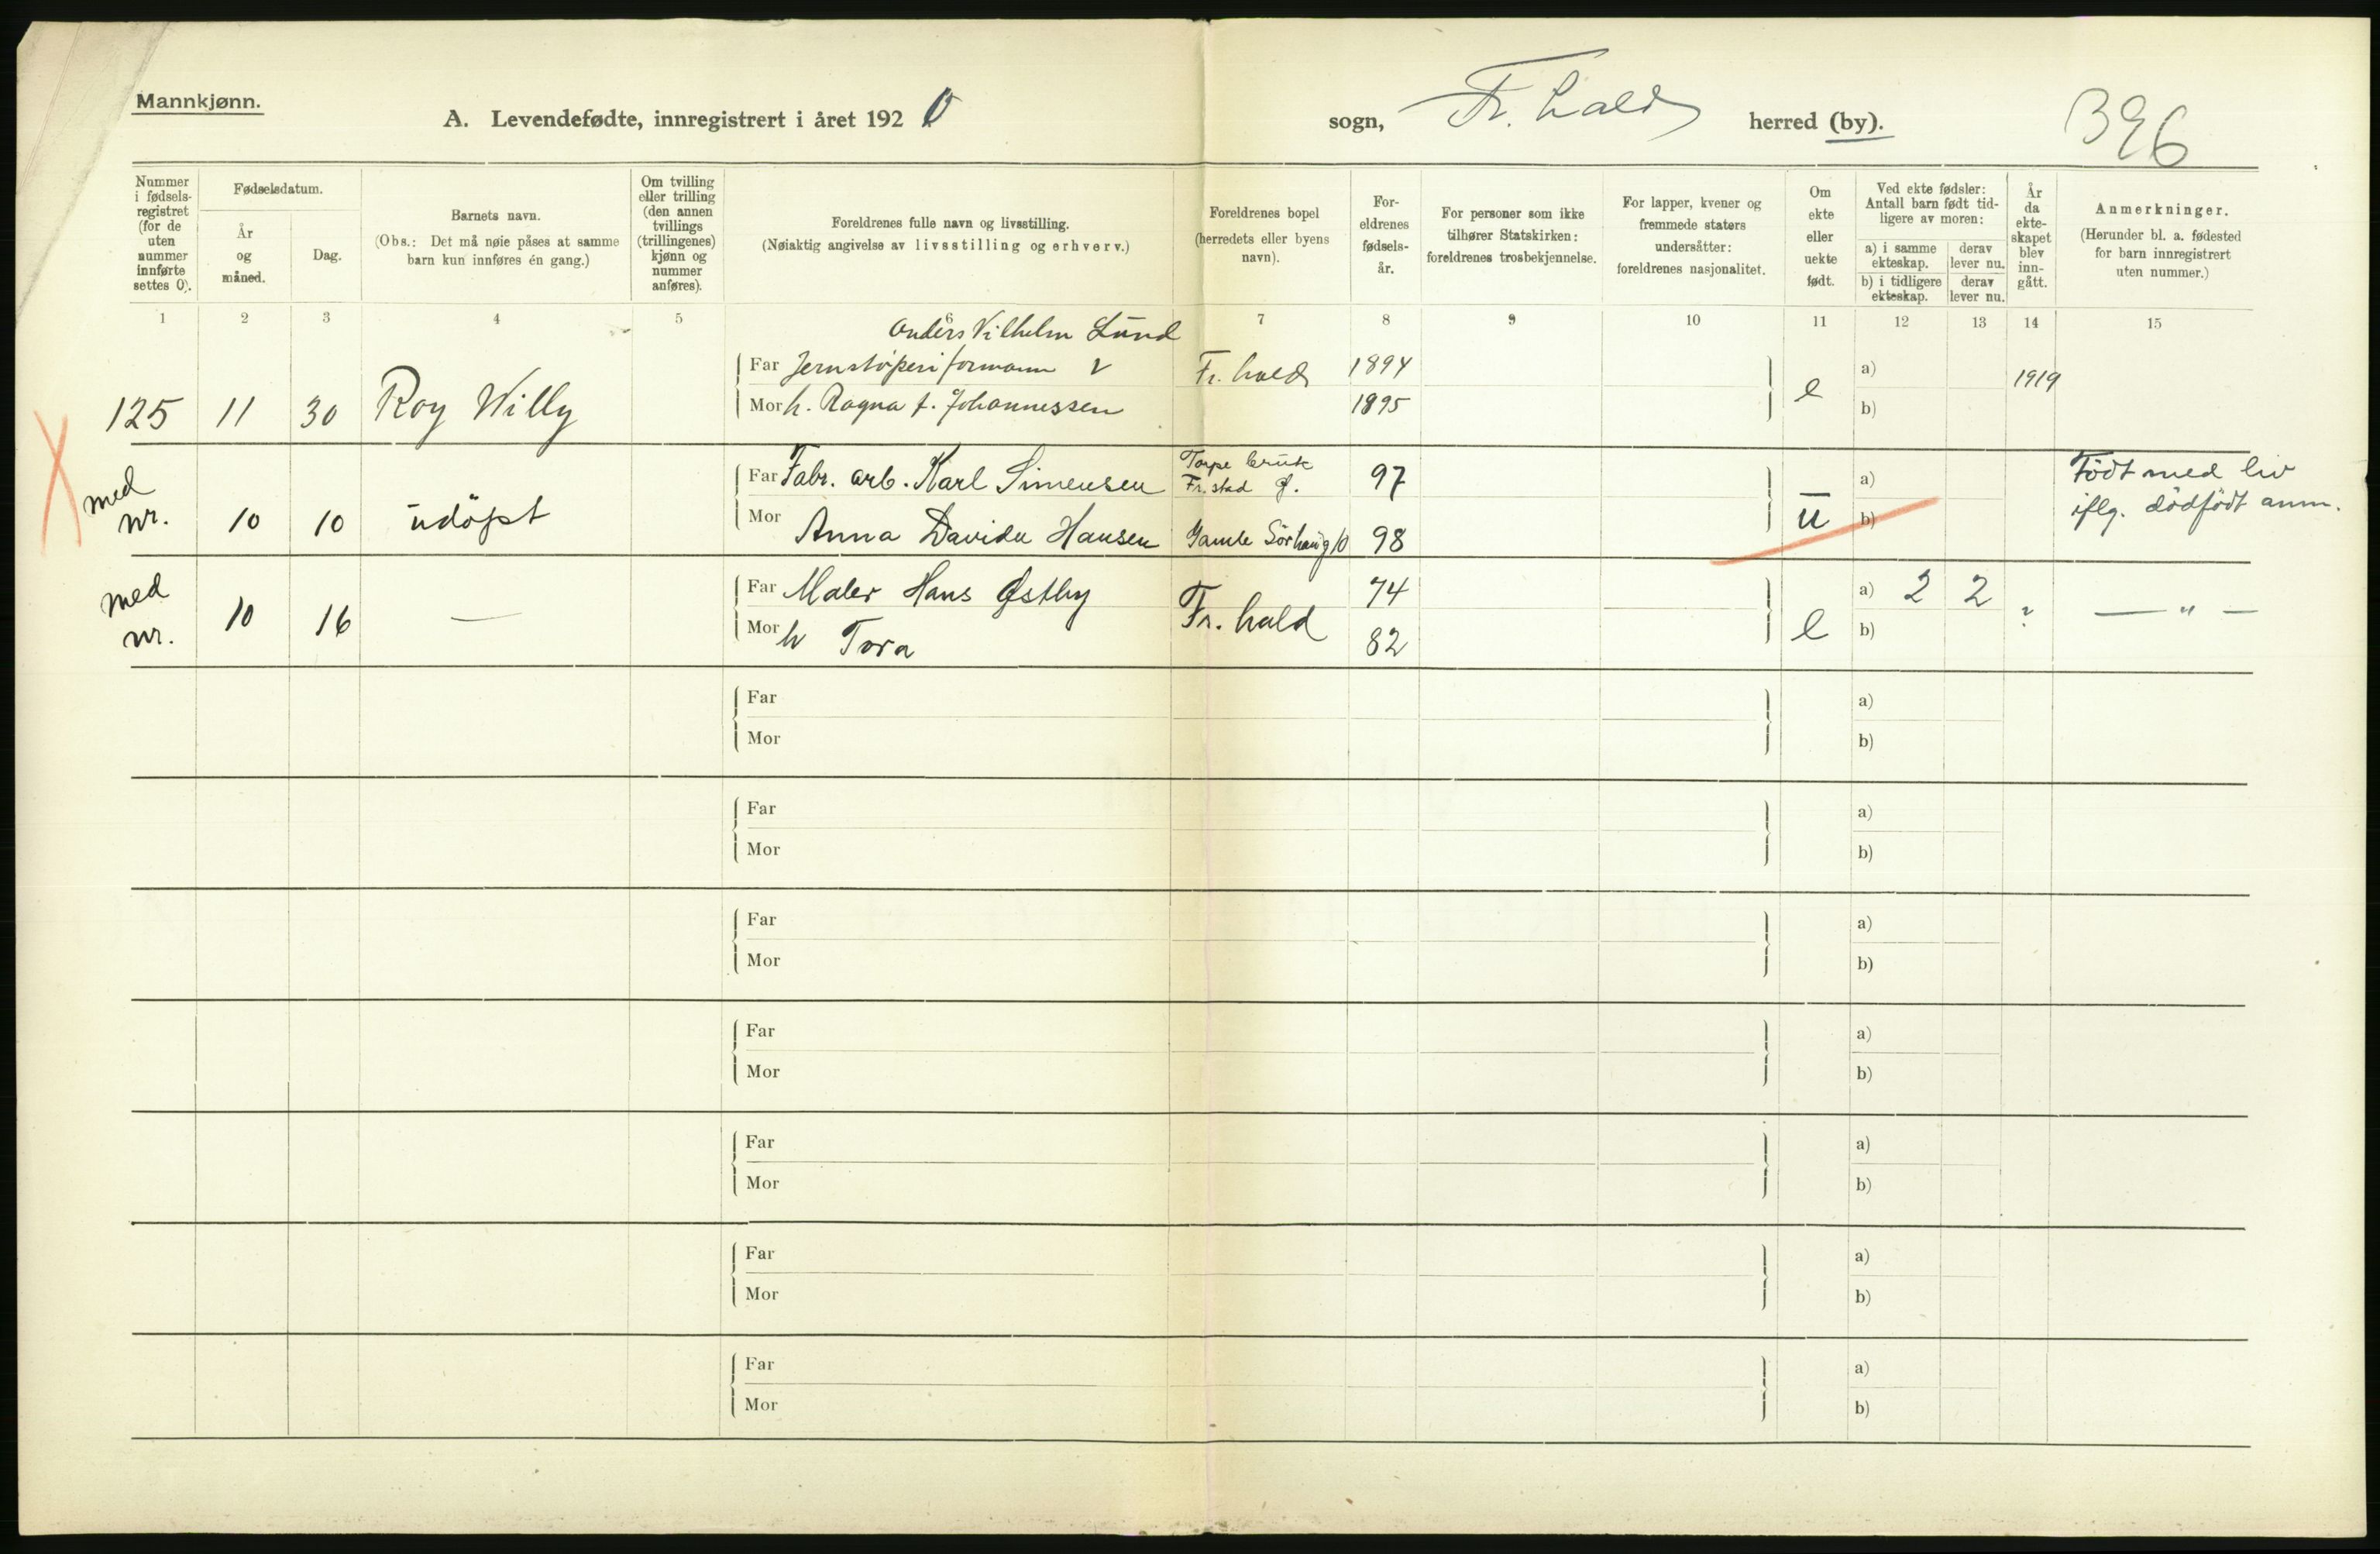 Mannkjønn.
A. Levendefødte, innregistrert i året 1920
sogn, Fr.hald herred (by).
396
Nummer i fødsels-registret (for de uten nummer innførte settes 0).
Fødselsdatum.
År og måned.
Dag.
Barnets navn.
(Obs.: Det må nøie påses at samme barn kun innføres én gang.)
Om tvilling eller trilling (den annen tvillings (trillingenes) kjønn og nummer anføres).
Foreldrenes fulle navn og livsstilling.
(Nøiaktig angivelse av livsstilling og erhverv.)
Foreldrenes bopel (herredets eller byens navn).
For-eldrenes fødsels-år.
For personer som ikke tilhører Statskirken: foreldrenes trosbekjennelse.
For lapper, kvener og fremmede staters undersåtter: foreldrenes nasjonalitet.
Om ekte eller uekte født.
Ved ekte fødsler: Antall barn født tid-ligere av moren:
a) i samme ekteskap.
derav lever nu.
b) i tidligere ekteskap.
derav lever nu.
År da ekte-skapet blev inn-gått.
Anmerkninger.
(Herunder bl. a. fødested for barn innregistrert uten nummer.)
1 2 3 4 5 6 7 8 9 10 11 12 13 14 15
Anders Vilhelm Lund
Far Jernstöperiformann V Fr.hald 1894 a) 1919
125 11 30 Roy Willy e
Mor h. Ragna f. Johannessen 1895 b)
Far Fabr. arb. Karl Simensen Torpe bruk Fr.stad 97 a) Födt med liv
med nr. 10 10 udöpt u iflg. dödfödt anm.
Mor Anna Davida Hansen Gamle Sörhaug 10 98 b)
Far Maler Hans Østby 74 a) 2 2
med nr. 10 16 — Fr.hald e ? — " —
Mor h Tora 82 b)
Far a)
Mor b)
Far a)
Mor b)
Far a)
Mor b)
Far a)
Mor b)
Far a)
Mor b)
Far a)
Mor b)
Far a)
Mor b)